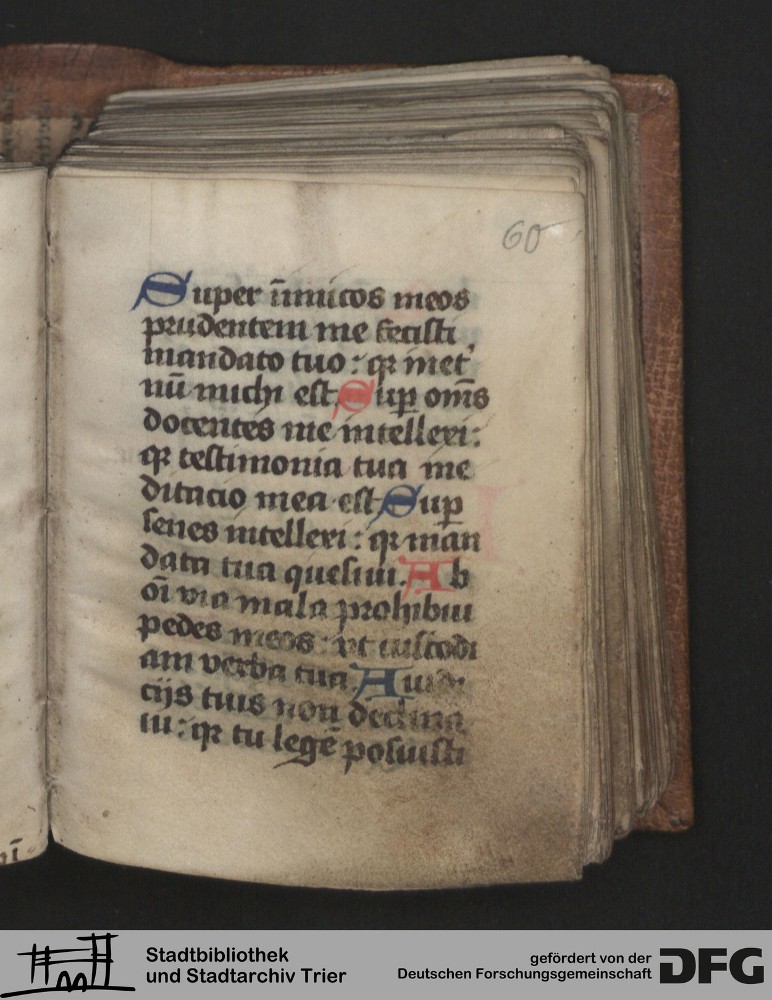 60
Super īnimicos meos
prudentem me fecisti
mandato tuo : qꝛ in et̾
nū michi est Sup om̄s
docentes me intellexi :
qꝛ testimonia tua me
ditacio mea est Sup
senes intellexi : qꝛ man
data tua quesiui. Ab
oī via mala prohibui
pedes meos : vt custodi
am verba tua A iudi
cijs tuis non declina
ui : qꝛ tu legē posuisti
Stadtbibliothek
und Stadtarchiv Trier
gefördert von der
Deutschen Forschungsgemeinschaft
DFG